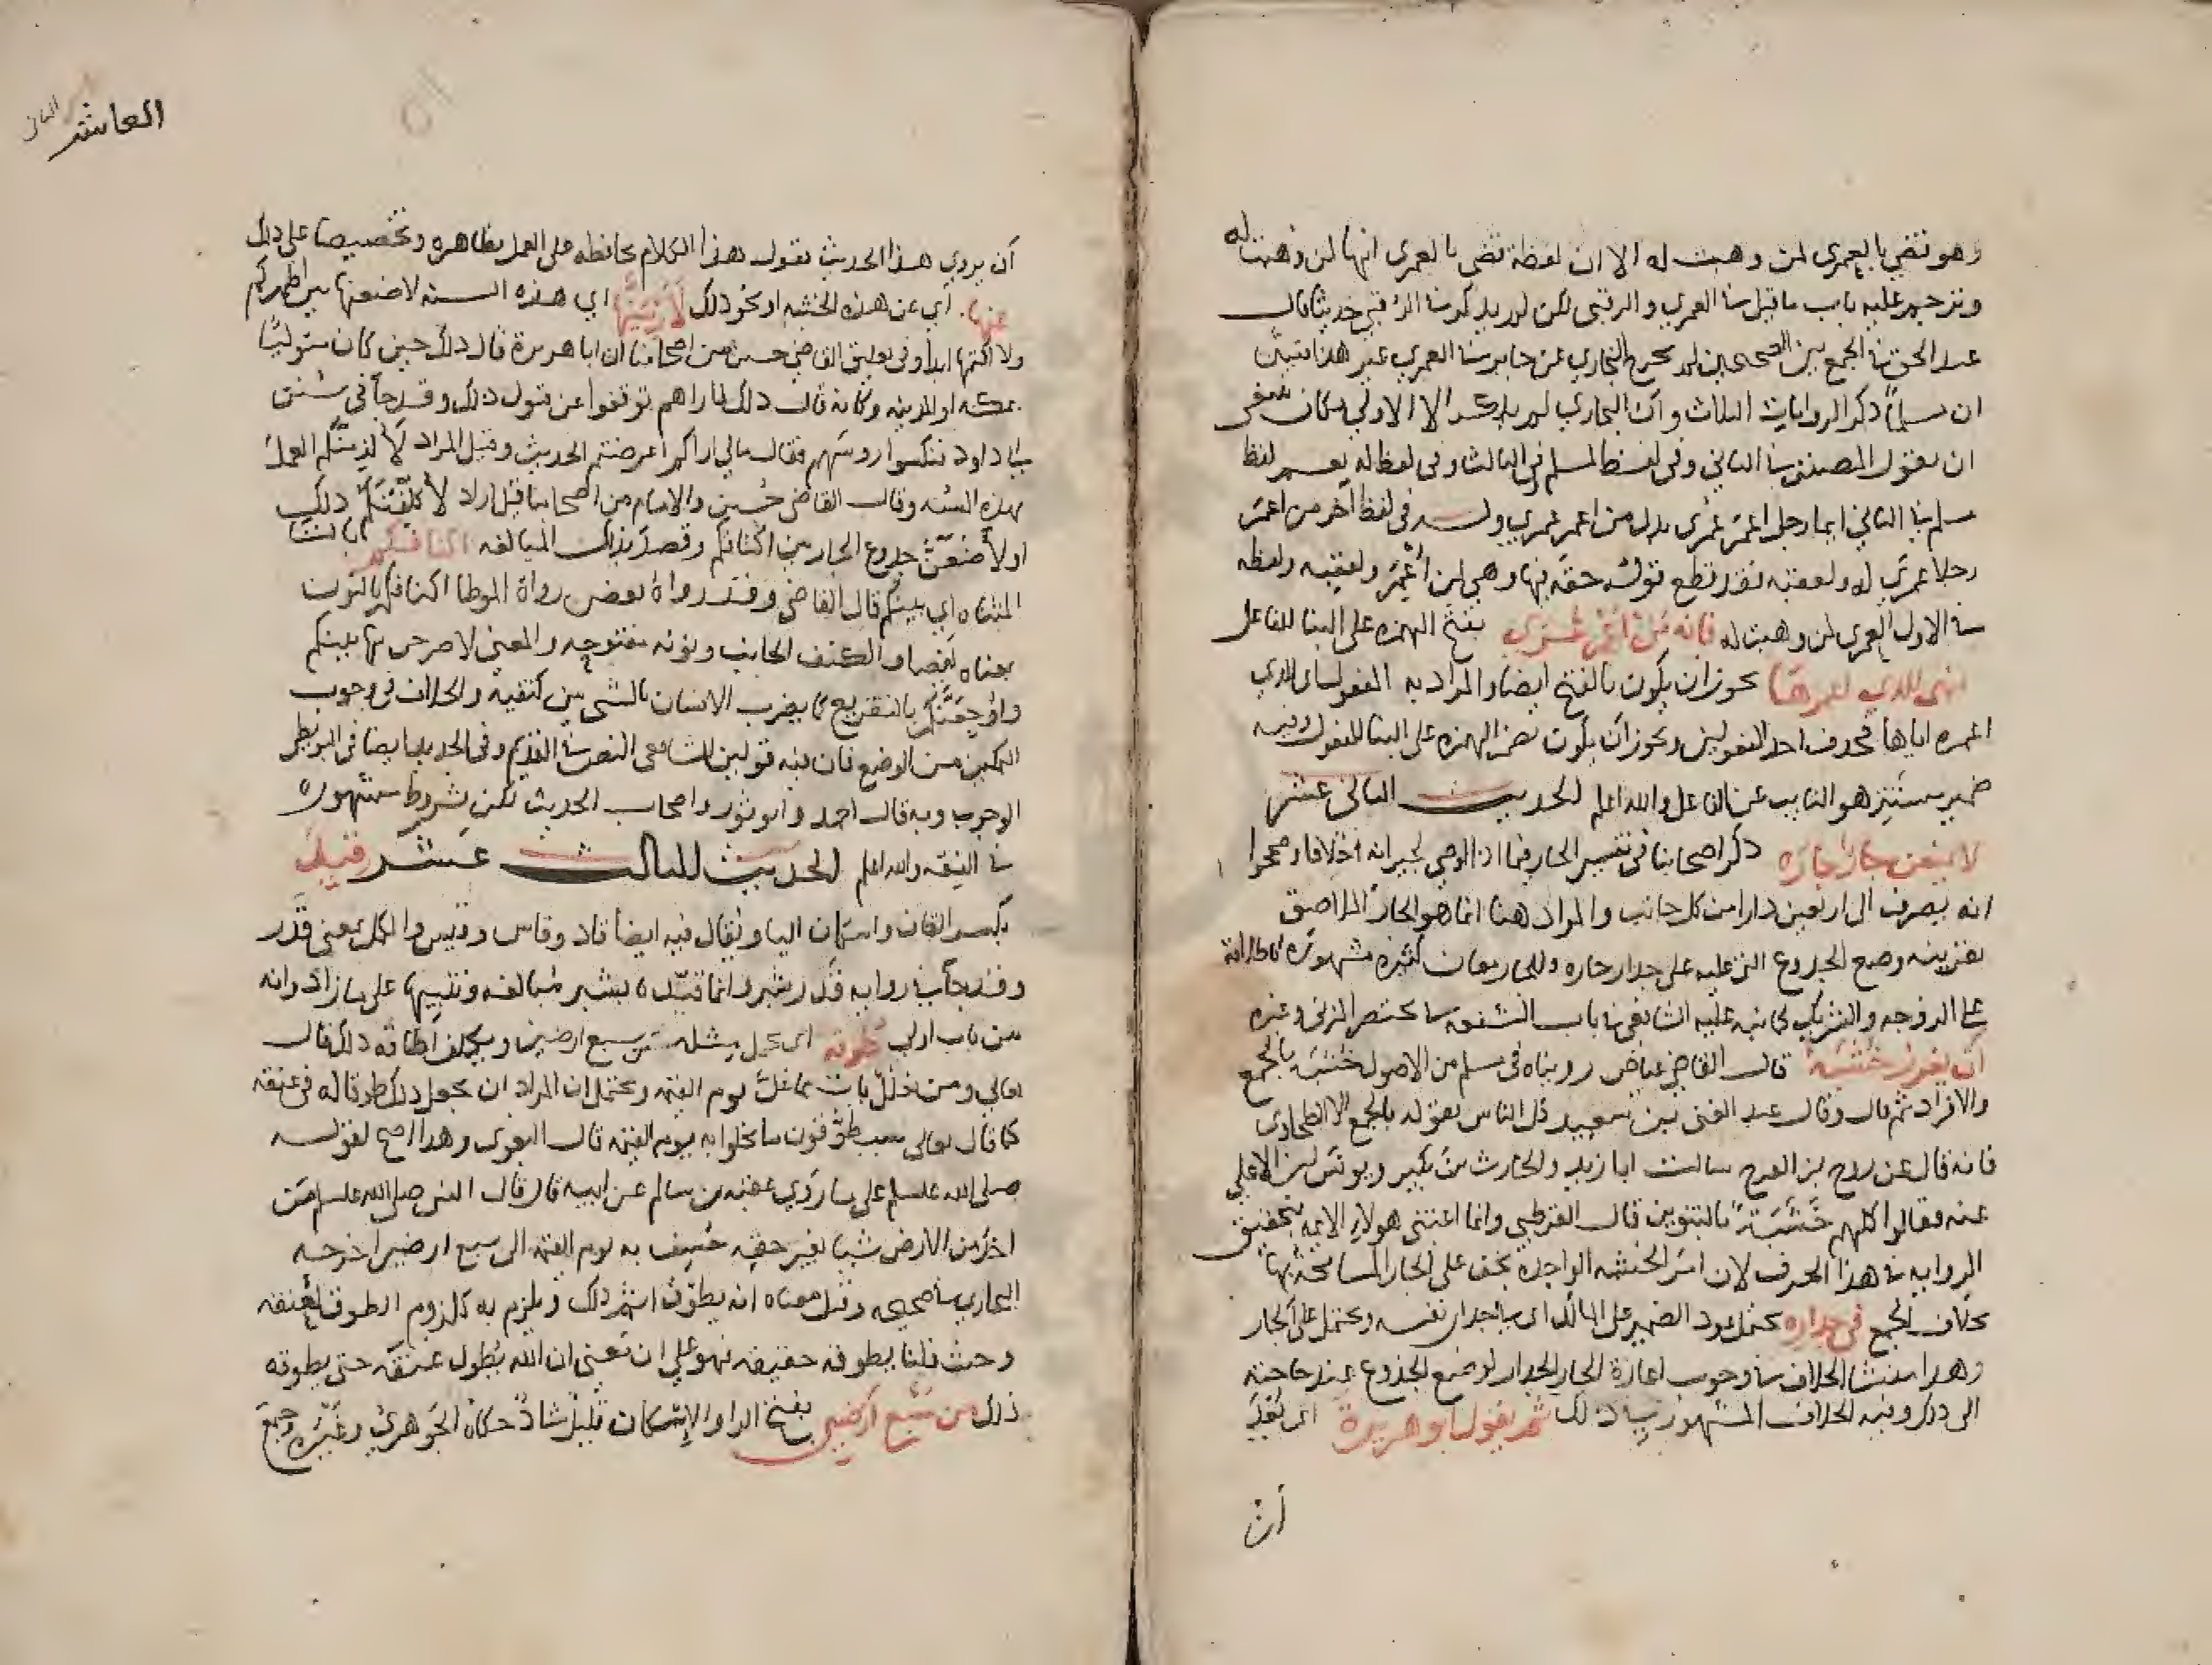 وهو تقضى بالعمرى لمن وهبت له الا ان لفظه قضى بالعمرى انها لمن وهبت له
وترجم عليه باب ما قيل في العمرى والرقبى لكن لم يذكر في الرقبى حديثا قال
عبد الحق في الجمع بين الصحيحين لم يخرج البخاري عن جابر في العمرى غير هذا فتبين
ان مسلما ذكر الروايات الثلاث وان البخاري لم يذكر الا الاولى فكان ينبغى
ان يقول المصنف في الثاني وفي لفظ لمسلم وفي الثالث وفي لفظ له نعم لفظ
مسلم في الثاني ايما رجل اعمر عمرى بدل من اعمر عمرى وله في لفظ آخر من اعمر
رجلا عمرى له ولعقبه فقد قطع قوله حقه فيها وهي لمن أُعمر ولعقبه ولفظه
في الاول العمرى لمن وهبت له فانه من اعمر عمرى بفتح الهمزه على البنا للفاعل
فهى للذي اعمرها يجوز ان يكون بالفتح ايضا والمراد به المفعول اى الذي
اعمره اياها فحذف احد المفعولين ويجوز ان يكون بضم الهمزه على البنا للمفعول وفيه
ضمير مستتر هو النايب عن الفاعل والله اعلم الحديث الثانى عشر
لا يمنعن جار جاره ذكر اصحابنا في تفسير الجار فيما اذا اوصى لجيرانه اختلافا وصححوا
انه يصرف الى اربعين دارا من كل جانب والمراد هنا انما هو الجار الملاصق
بقرينه وضع الجذوع التي عليه على جدار جاره وللجار معان كثيره مشهوره كاطلاقه
على الزوجه والشريك كما نبه عليه الشافعي في باب الشفعه من مختصر المزني وغيره
أن يغرز خشبه قال القاضي عياض رويناه في مسلم من الاصول خشبه بالجمع
والافراد ثم قال وقال عبد الغنى بن سعيد كل الناس يقوله بالجمع الا الطحاوى
فانه قال عن روح بن الفرج سالت ابا زيد والحارث بن بكير ويونس بن الاعلى
عنه فقالوا كلهم خَشَبَةً بالتنوين قال القرطبي وانما اعتنى هولاء الايمه بتحقيق
الروايه في هذا الحرف لان امر الخشبه الواحده يخف على الجار المسامحة بها
بخلاف الجمع في جداره يحتمل عود الضمير على المالك اى في جدار نفسه ويحتمل على الجار
وهذا منشا الخلاف في وجوب اعارة الجار الجدار لوضع الجذوع عند حاجته
الى ذلك وفيه الخلاف المشهور في ذلك ثم يقول ابو هريرة اى بعد
أن
العاشر
أن يروي هذا الحديث يقول هذا الكلام محافظه على العمل بظاهره وتحضيضا على ذلك
عنها أي عن هذه الخشبه او نحو ذلك لأرمينها اي هذه السنه لاضعنها بين اظهركم
ولا اكتمها ابدا وفى تعليق القاضي حسين من اصحابنا ان ابا هريرة قال ذلك حين كان متوليا
بمكه او المدينه وكانه قال ذلك لما راهم توقفوا عن قبول ذلك وقد جآ في سنن
أبي داود فنكسوا روسهم فقال مالي اراكم اعرضتم الحديث وقيل المراد لألزمنكم العمل
بهذه السنه وقال القاضي حسين والامام من اصحابنا قيل اراد لأكلفنكم ذلك
او لأضعن جذوع الجار بين اكتافكم وقصد بذلك المبالغه اكتافكم بالتا
المثناه اي بينكم قال القاضي وقد رواه بعض رواة الموطا اكنافكم بالنون
معناه ايضا والكنف الجانب ونونه مفتوحه والمعنى لاصرحن بها بينكم
واوجعنكم بالتقريع كما يضرب الانسان بالشي بين كتفيه والخلاف في وجوب
التمكين من الوضع فان فيه قولين للشافعى النص في القديم وفى الجديد ايضا في البويطى
الوجوب وبه قال احمد وابو ثور واصحاب الحديث لكن بشروط مشهوره
في الفقه والله اعلم الحديث الثالث عشر قيد
بكسر القاف واسكان اليا ويقال فيه ايضا قاد وقاس وقيس والكل بمعنى قدر
وقد جآ في روايه قدر شبر وانما قيده بشبر مبالغه وتنبيها على ما زاد وانه
من باب اولى طوقه اى حمل مثله من سبع ارضين ويكلف اطاقه ذلك قال
تعالى ومن يغلل يات بما غل يوم القيمه ويحتمل ان المراد ان يجعل ذلك طوقا له في عنقه
كما قال تعالى سيطوقون ما بخلوا به يوم القيمه قال البغوى وهذا اصح لقوله
صلى الله عليه وسلم على ما روي عقبه بن سالم عن ابيه قال قال النبى صلى الله عليه وسلم من
اخذ من الارض شيا بغير حقه خسف به يوم القيمه الى سبع ارضين اخرجه
البخاري في صحيحه وقيل معناه انه يطوق اثم ذلك ويلزم به كلزوم الطوق لعنقه
وحيث قلنا يطوقه حقيقه فهو على ان معنى ان الله يُطول عنقه حتى يطوقه
ذلك من سبع ارضين بفتح الرا والاسكان قليل شاذ حكاه الجوهري وغيره وجمع